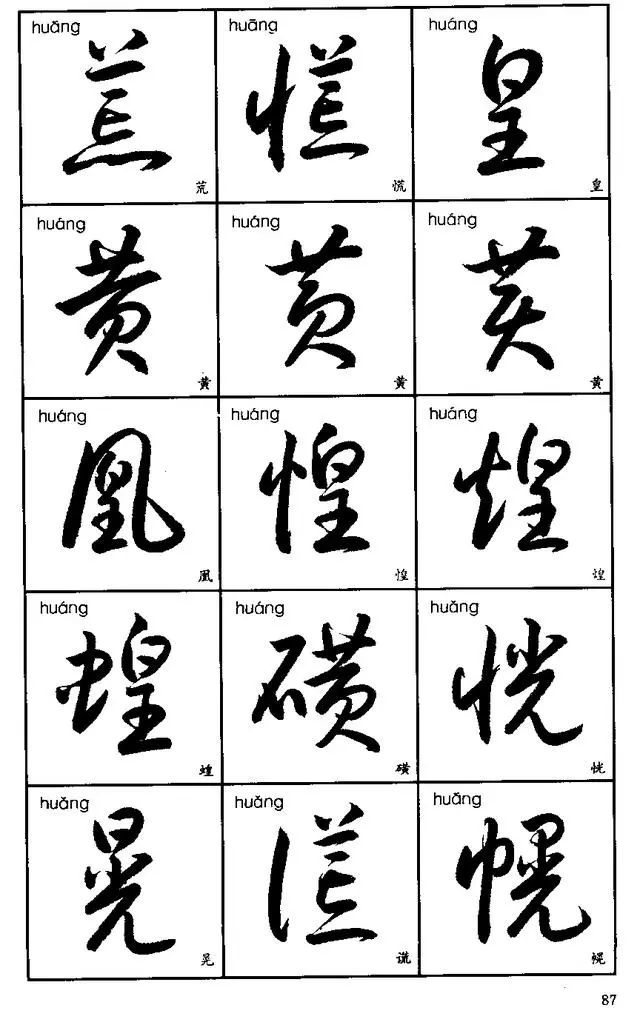 huǎng huāng huáng
荒 慌 皇
荒 慌 皇
huáng huáng huáng
黄 黄 黄
黄 黄 黄
huáng huáng huáng
凰 惶 煌
凰 惶 煌
huáng huáng huǎng
蝗 磺 恍
蝗 磺 恍
huǎng huǎng huǎng
晃 谎 幌
晃 谎 幌
87